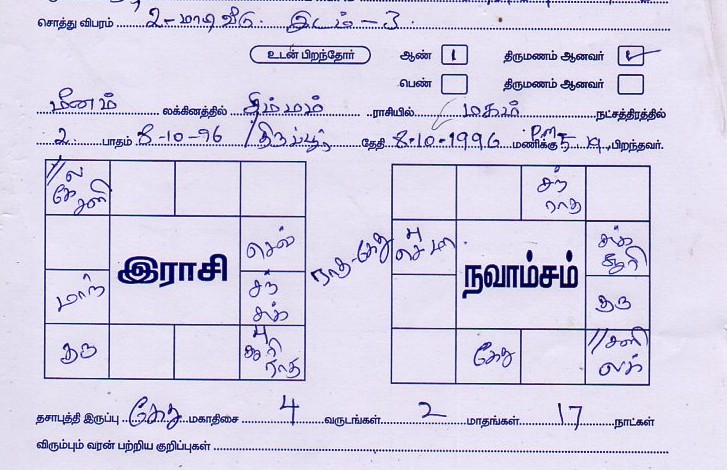 சொத்து விபரம் 2-மாடிவீடு. இடம்-3.
உடன் பிறந்தோர் ஆண் 1 திருமணம் ஆனவர் 1
பெண் திருமணம் ஆனவர்
மீனம் லக்கினத்தில் சிம்மம் ராசியில் மகம் நட்சத்திரத்தில்
2 பாதம் 8-10-96 / திருப்பூர் தேதி 8-10-1996 மணிக்கு P.M 5 பிறந்தவர்.
//ல
கே சனி
செவ்
மாந்
இராசி
சந்
சுக்
குரு
சூரி
ராகு
ராகு-கேது
சந்
ராகு
செ மா
சுக்
சூரி
நவாம்சம்
குரு
கேது
//சனி
லக்
தசாபுத்தி இருப்பு கேது மகாதிசை 4 வருடங்கள் 2 மாதங்கள் 17 நாட்கள்
விரும்பும் வரன் பற்றிய குறிப்புகள்